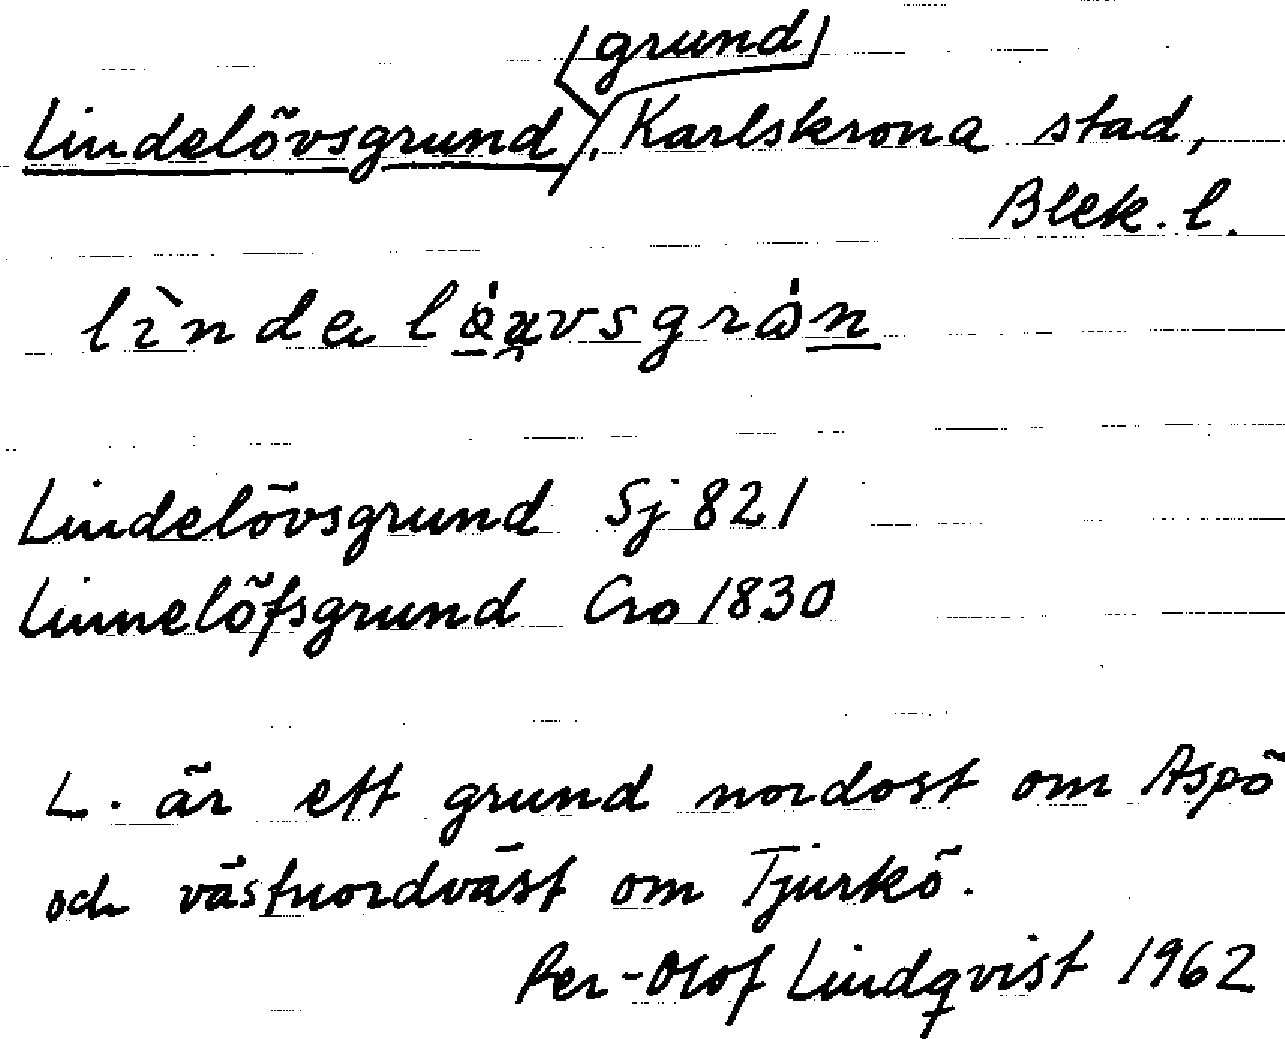 Lindelövsgrund, (grund) Karlskrona stad,
Blek. l.
Lindelövsgrund Sj 821
Linnelöfsgrund Cro 1830
L. är ett grund nordost om Aspö
och västnordväst om Tjurkö.
Per-Olof Lindqvist 1962